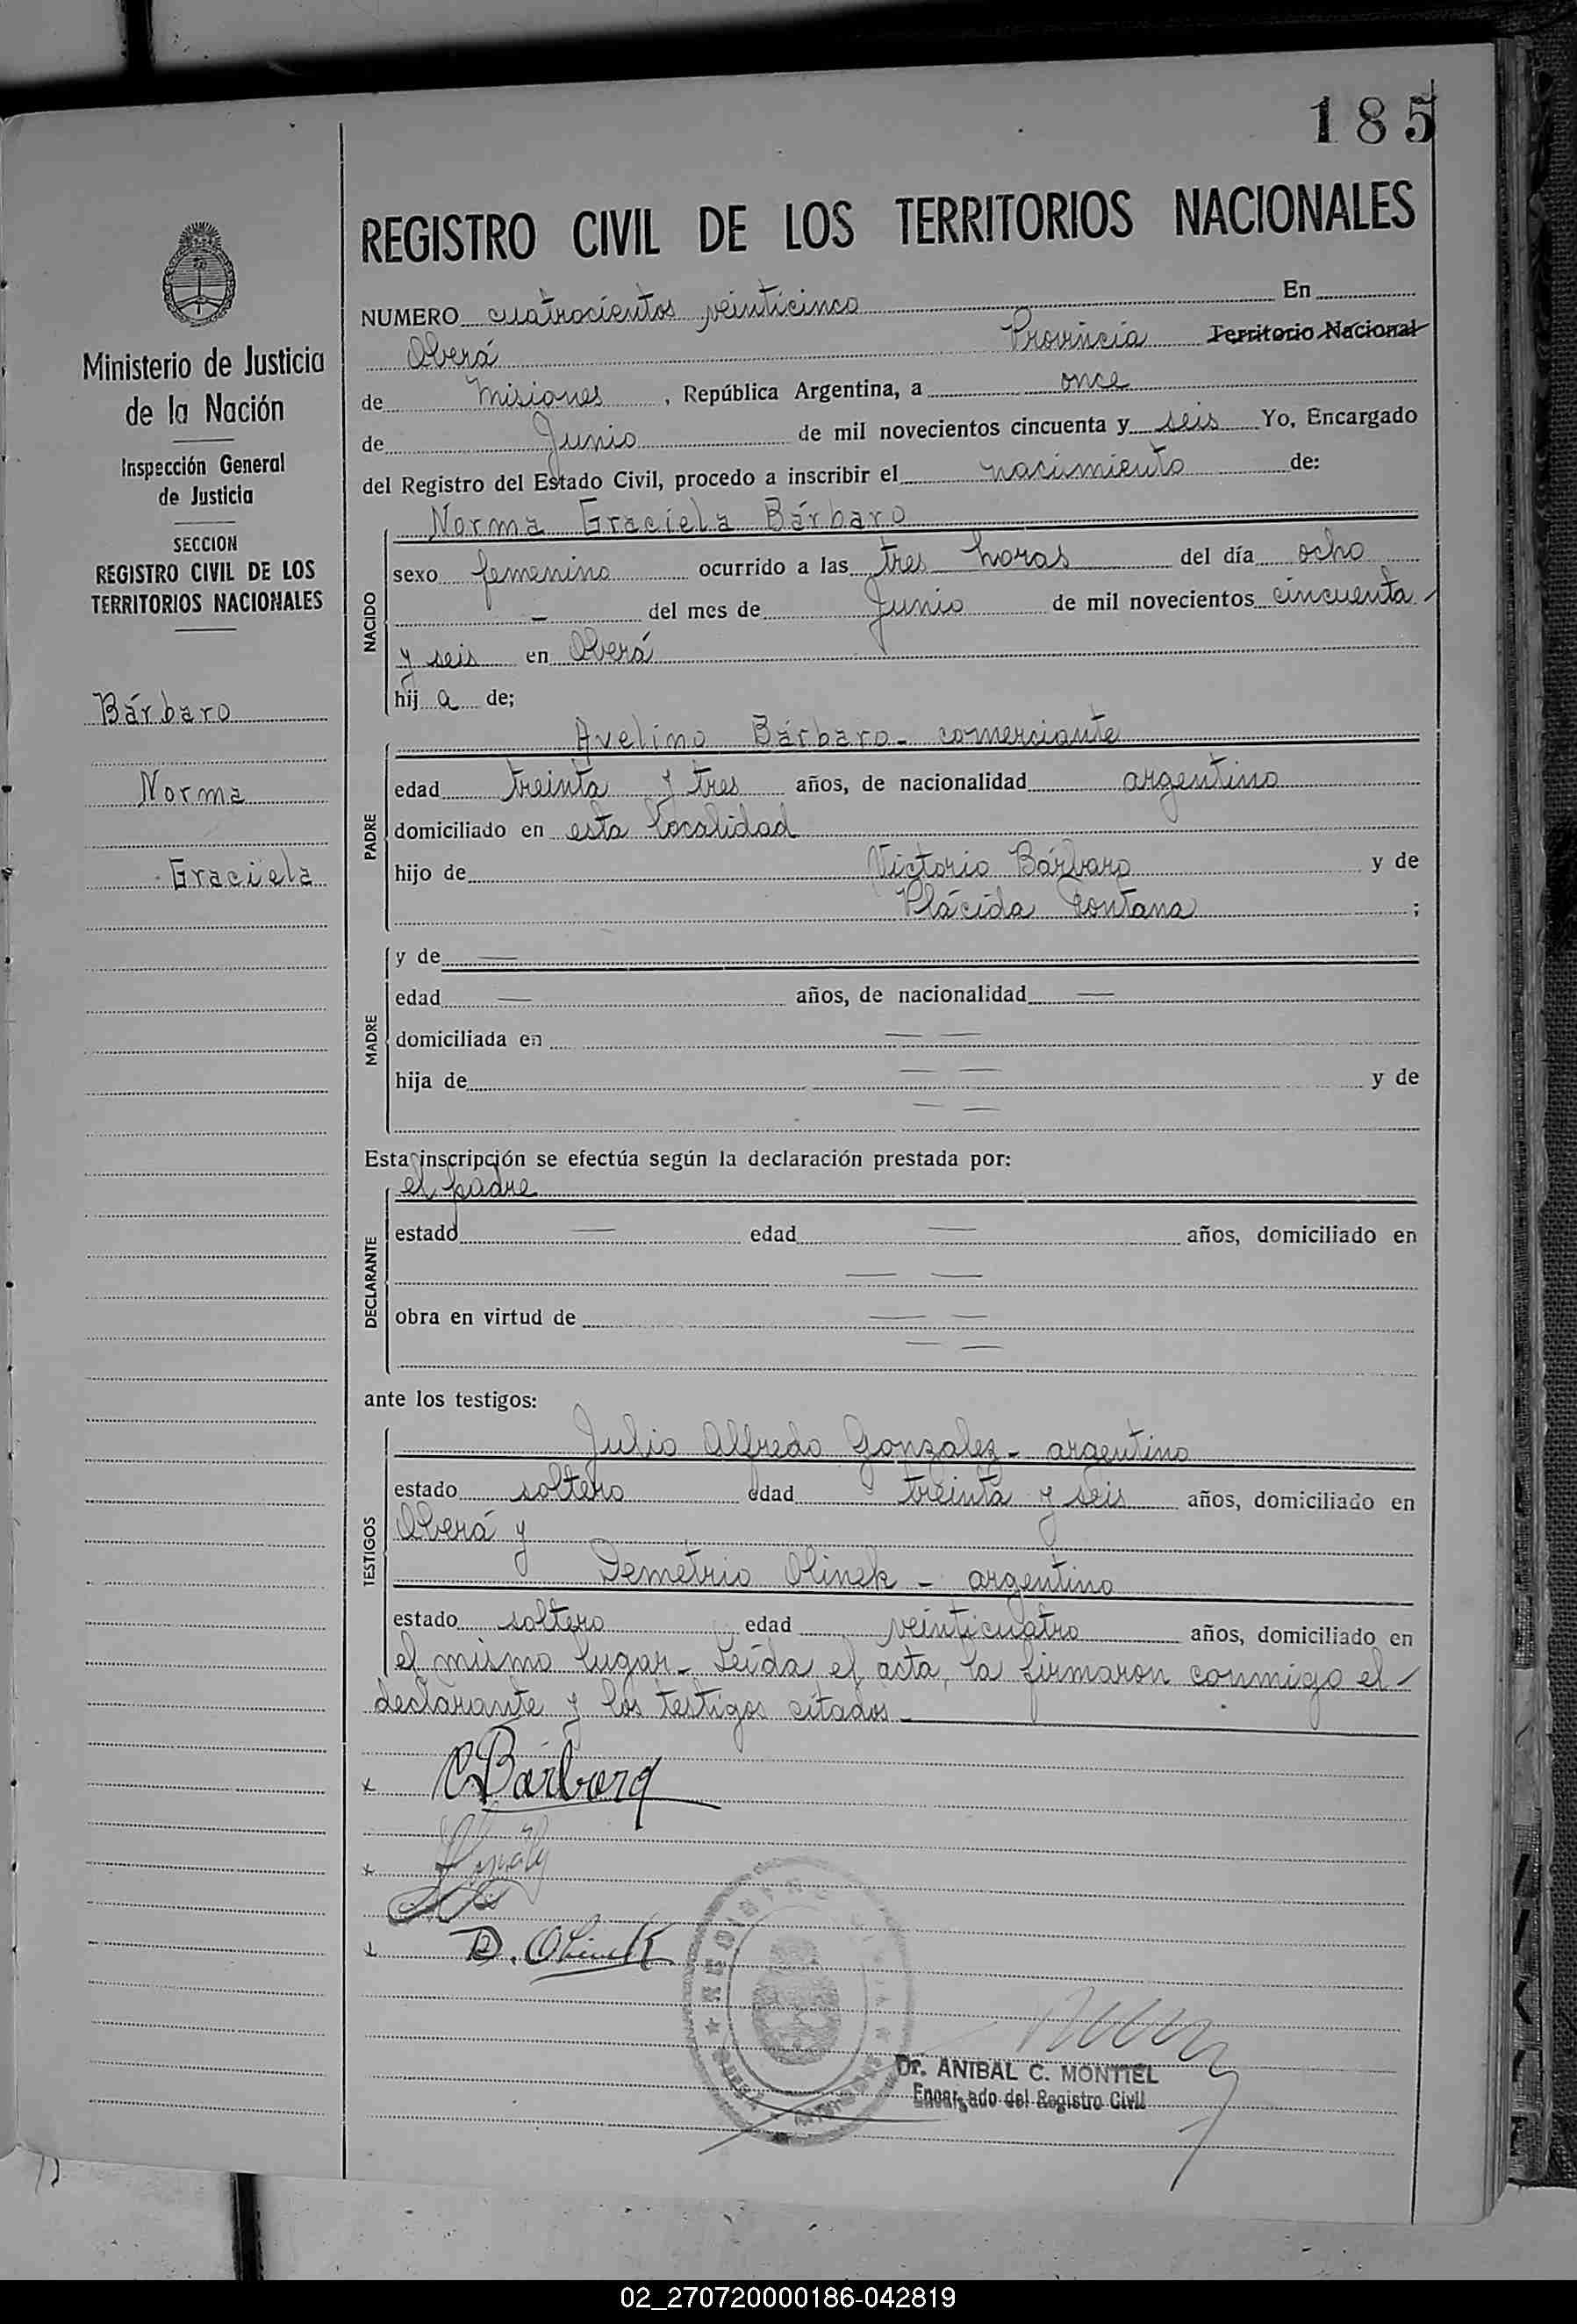 185
REGISTRO CIVIL DE LOS TERRITORIOS NACIONALES
Ministerio de Justicia
de la Nación
Inspección General
de Justicia
SECCION
REGISTRO CIVIL DE LOS
TERRITORIOS NACIONALES
Bárbaro
Norma
Graciela
NUMERO cuatrocientos veinticinco En
Oberá Provincia Territorio Nacional
de Misiones, República Argentina, a once
de Junio de mil novecientos cincuenta y seis Yo, Encargado
del Registro del Estado Civil, procedo a inscribir el nacimiento de:
NACIDO
Norma Graciela Bárbaro
sexo femenino ocurrido a las tres horas del día ocho
- del mes de Junio de mil novecientos cincuenta
y seis en Oberá
hij a de;
PADRE
Avelino Bárbaro - comerciante
edad treinta y tres años, de nacionalidad argentino
domiciliado en esta localidad
hijo de Victorio Bárbaro y de
Plácida Fontana ;
MADRE
y de —
edad — años, de nacionalidad —
domiciliada en — —
hija de — — y de
— —
Esta inscripción se efectúa según la declaración prestada por:
DECLARANTE
el padre
estado — edad — años, domiciliado en
— —
obra en virtud de — —
— —
ante los testigos:
TESTIGOS
Julio Alfredo Gonzalez - argentino
estado soltero edad treinta y seis años, domiciliado en
Oberá y
Demetrio Olinek - argentino
estado soltero edad veinticuatro años, domiciliado en
el mismo lugar - Leída el acta, la firmaron conmigo el
declarante y los testigos citados -
Bárbaro
D. Olinek
REGISTRO
Dr. ANIBAL C. MONTIEL
Encargado del Registro Civil
02_270720000186-042819